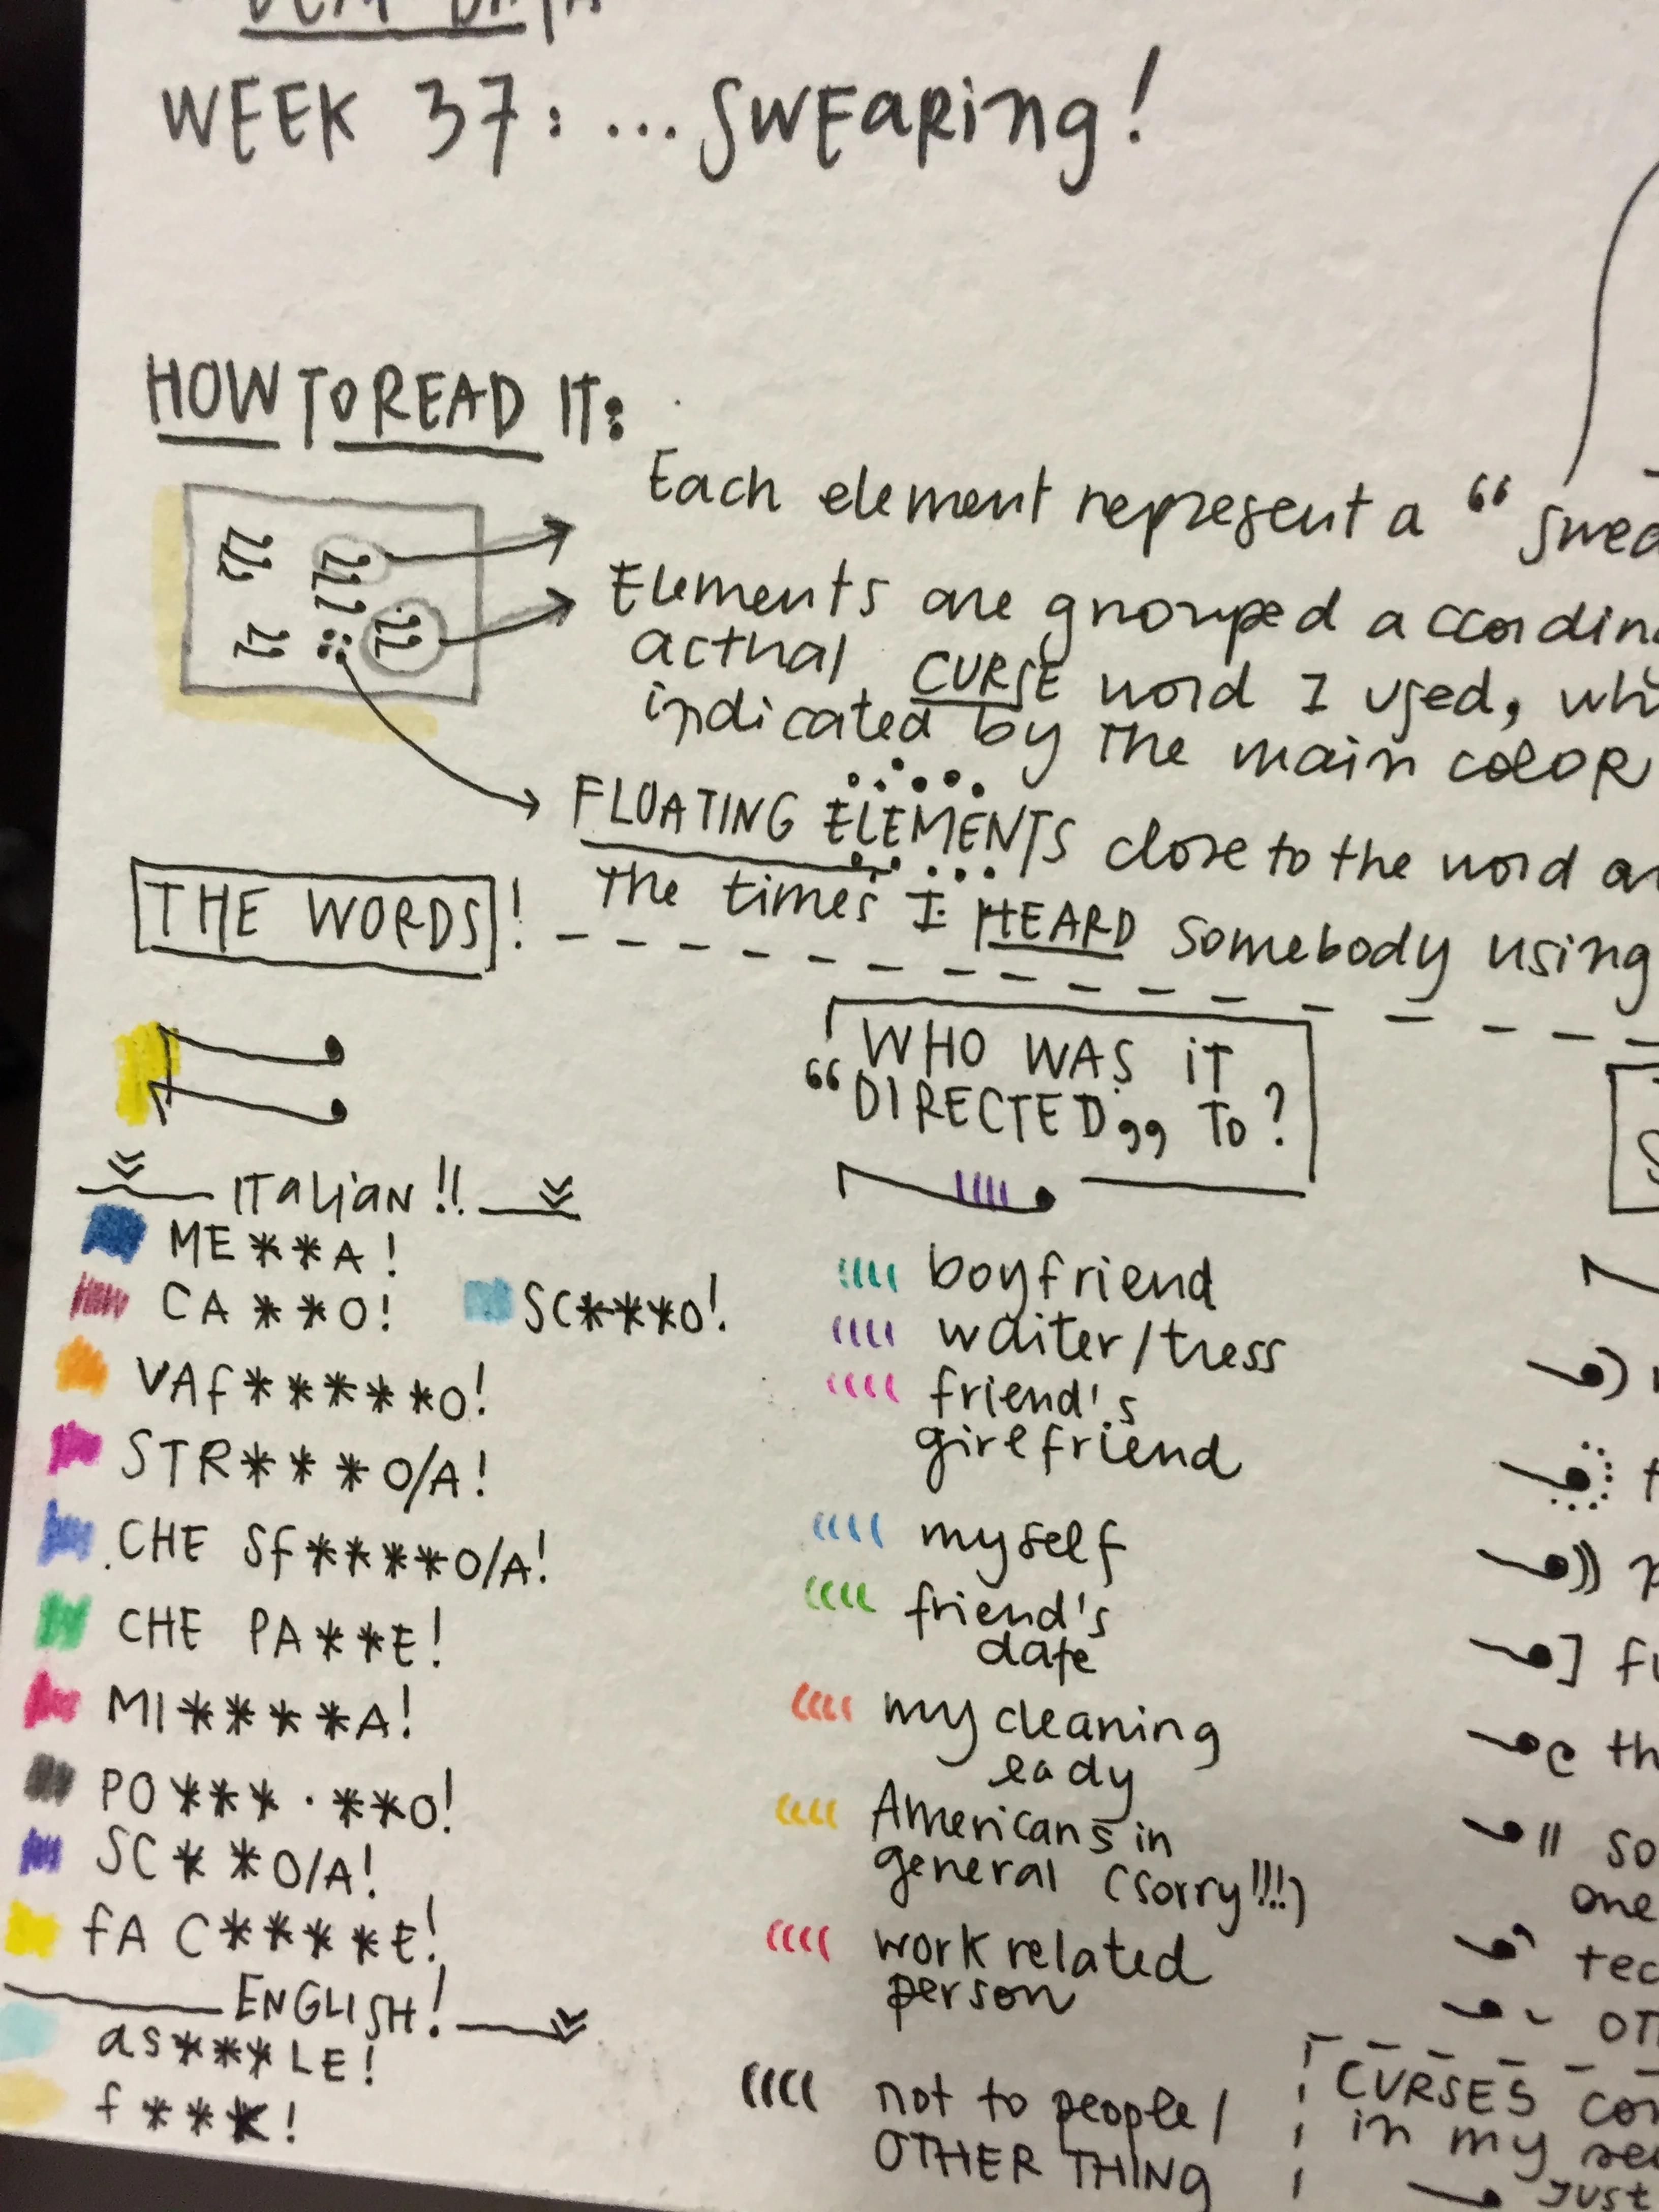 WEEK 37: ... SWEARING!
HOW TO READ IT:
Each element represent a "
Elements are grouped
actual CURSE word I used,
indicated by the main COLOR
FLOATING ELEMENTS close to the word
the times I HEARD somebody using
THE WORDS!
ITALIAN!!
ME**A!
CA**O!
SC***O!
VAF*****O!
STR***O/A!
CHE SF****O/A!
CHE PA**E!
MI****A!
PO***.**O!
SC**O/A!
FA C*****E!
ENGLISH!
as***LE!
f***!
WHO WAS IT
"DIRECTED" TO?
boyfriend
waiter/tress
friend's
girlfriend
myself
friend's
date
my cleaning
lady
Americans in
general (sorry!!!)
work related
person
not to people/
OTHER THING
one
CURSES
in my
just